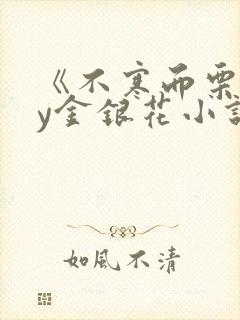 《不寒而栗
y金银花小説
如風不清